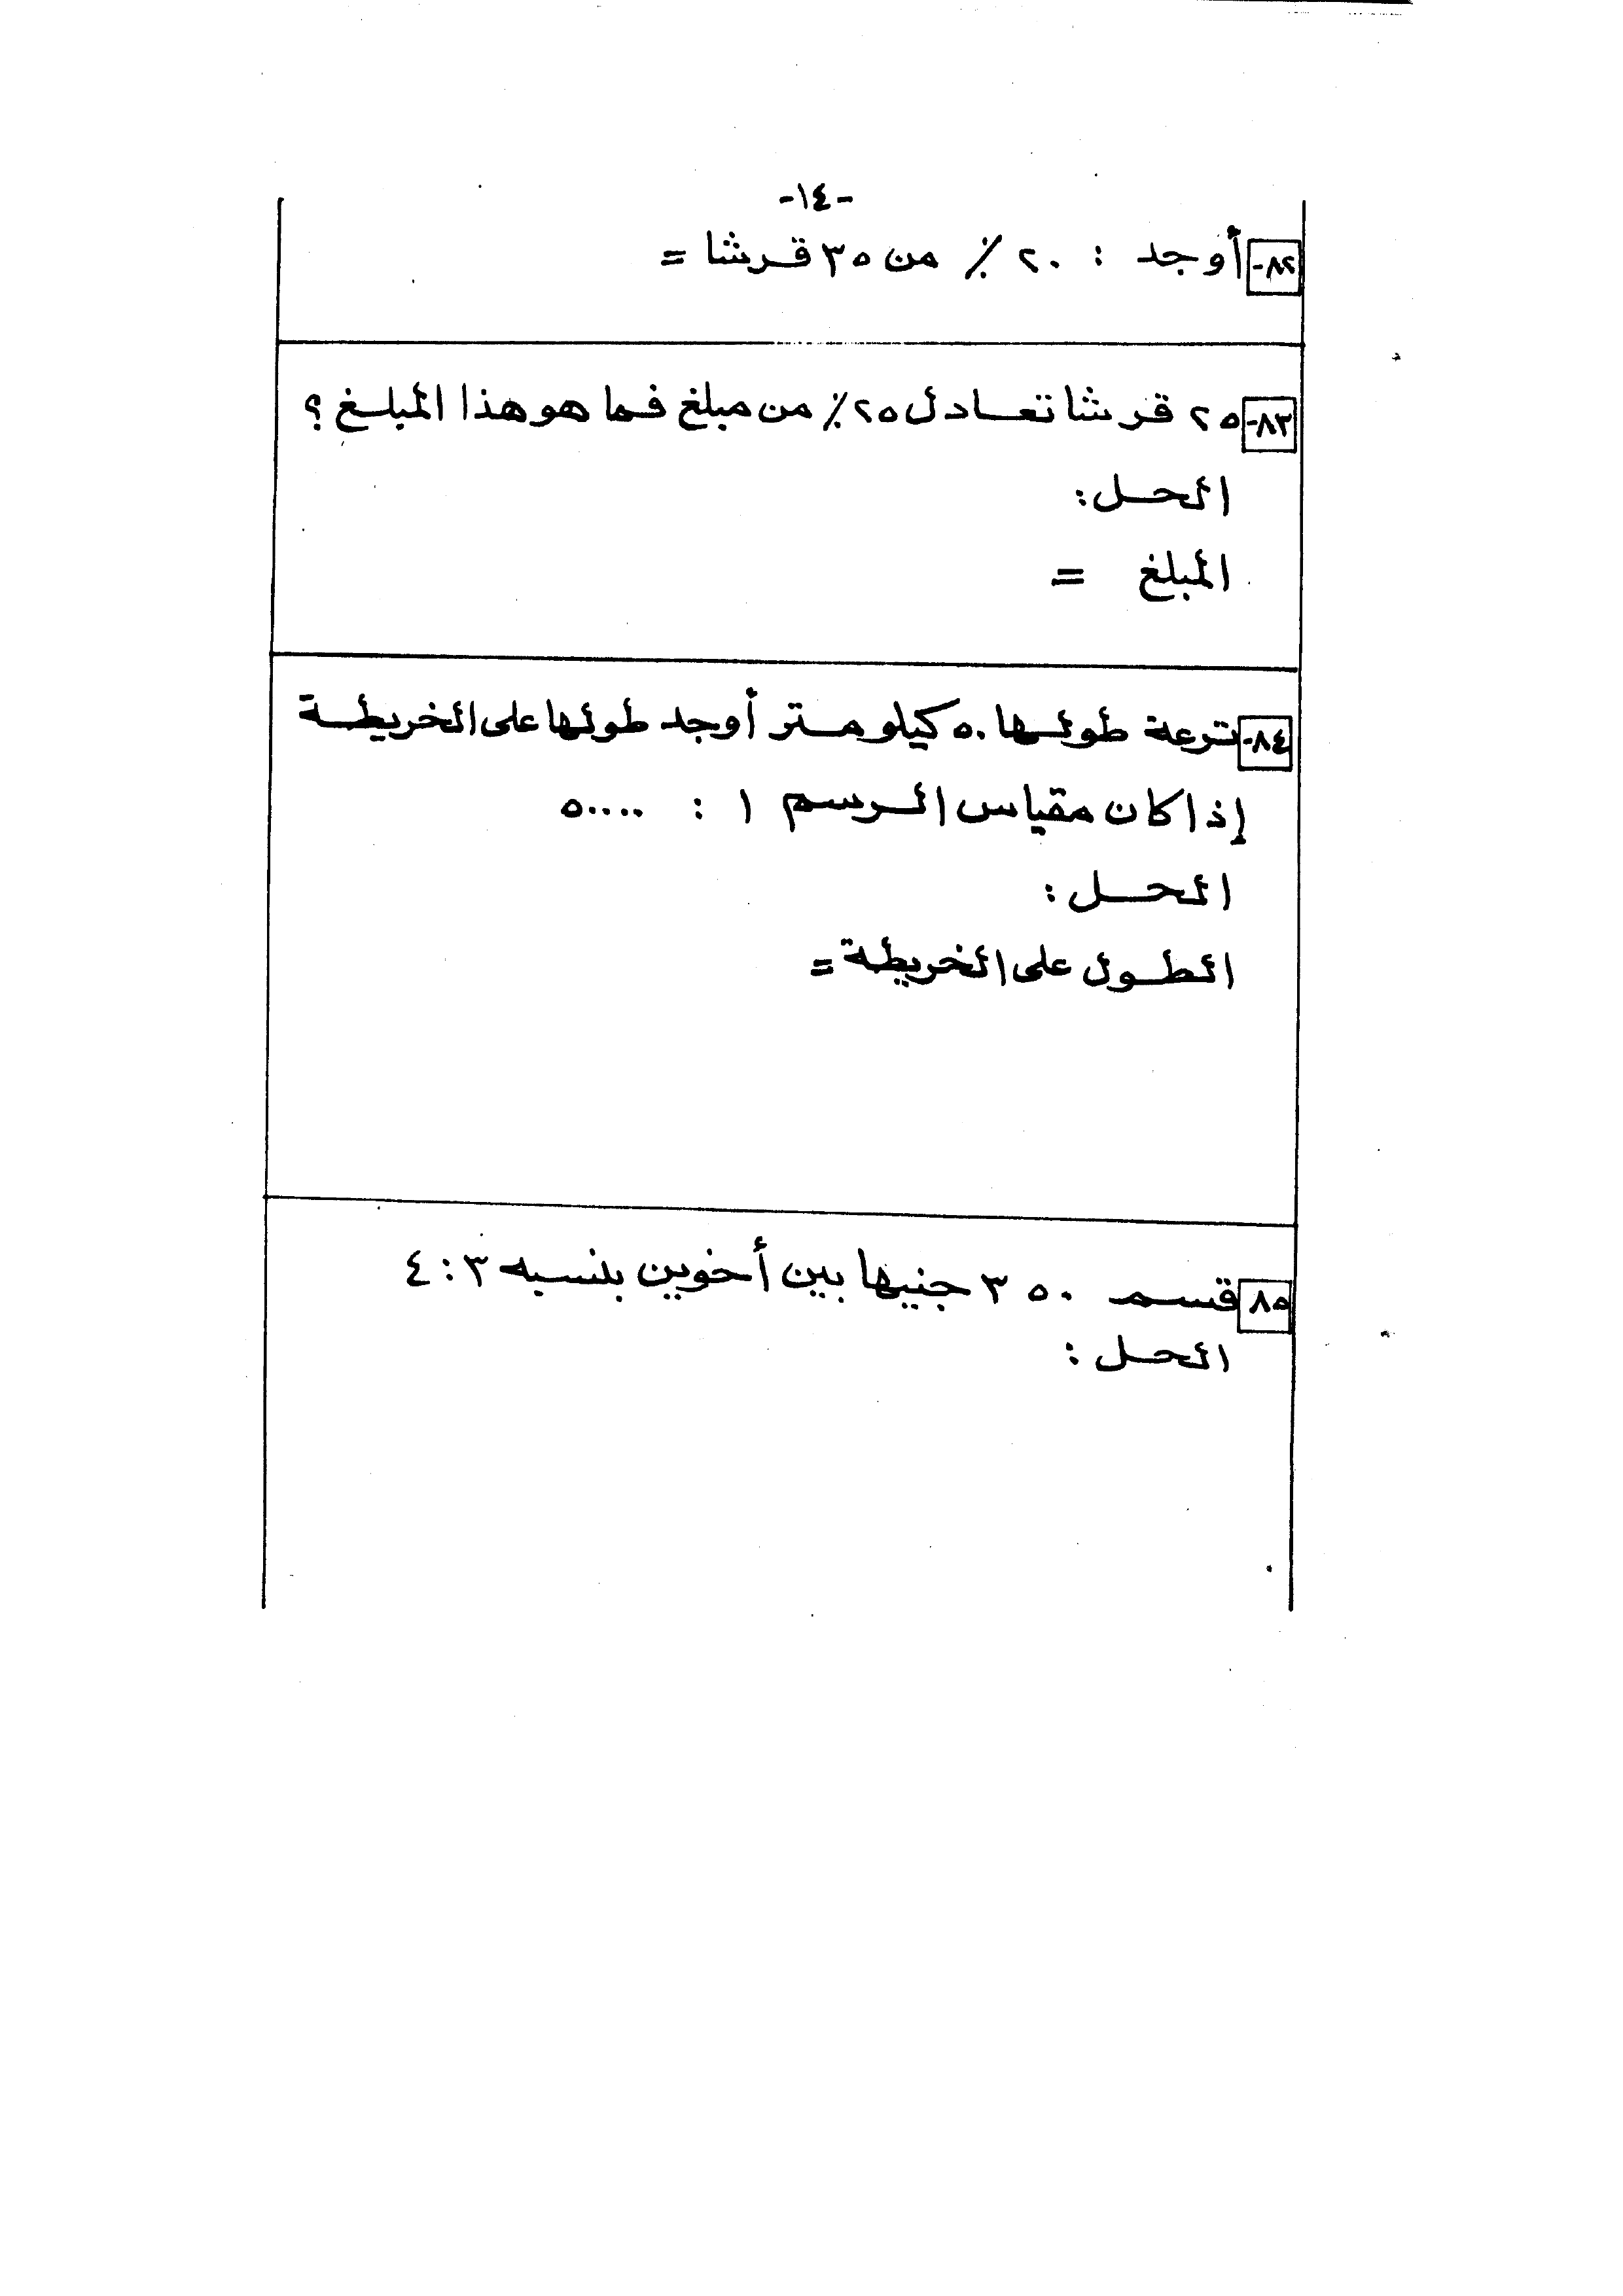 -١٤-
٨٢- أوجد : ٢٠ ٪ من ٣٥ قرشا =
٨٣- ٢٥ قرشا تعادل ٢٥٪ من مبلغ فما هو هذا المبلغ ؟
الحل:
المبلغ =
٨٤- ترعة طولها ٥٠ كيلو متر أوجد طولها على الخريطة
إذا كان مقياس الرسم ١ : ٥٠٠٠٠٠
الحل :
الطول على الخريطة =
٨٥ قسم ٣٥٠ جنيها بين أخوين بنسبه ٣ : ٤
الحل :